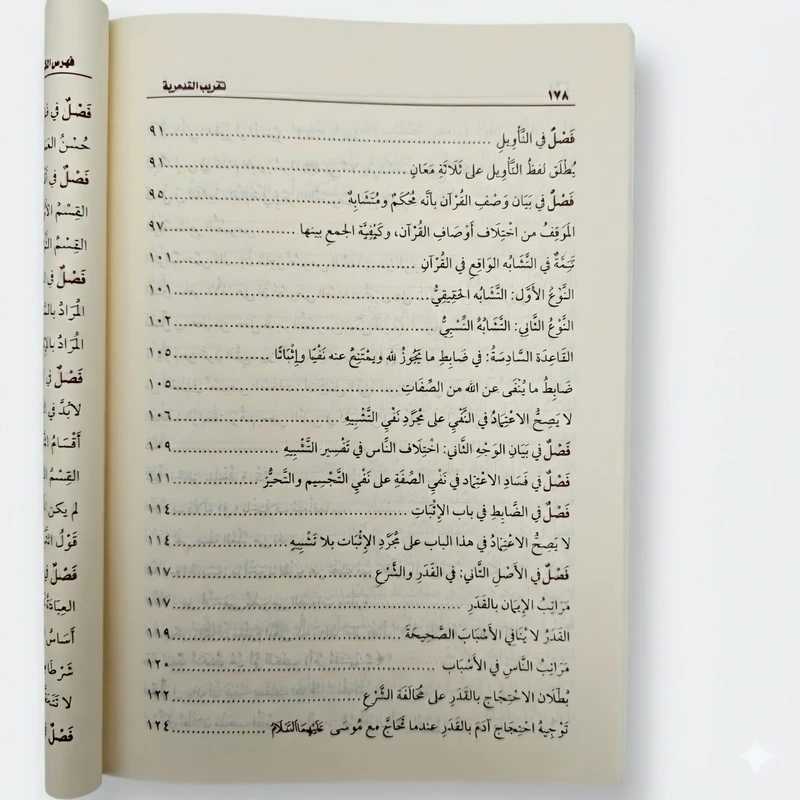 ١٧٨
تقريب التدمرية
فَصْلٌ في التَّأْوِيلِ ........ ٩١
يُطْلَق لفظُ التَّأْوِيل على ثَلَاثَةِ مَعَانٍ ........ ٩١
فَصْلٌ في بَيَان وَصْفِ القُرْآن بأنَّه مُحْكَمٌ ومُتَشَابِهٌ ........ ٩٥
المَوقِفُ من اخْتِلَاف أَوْصَافِ القُرْآن، وكَيْفِيَّة الجمعِ بينها ........ ٩٧
تَتِمَّةٌ في التَّشَابُه الوَاقِعِ في القُرْآنِ ........ ١٠١
النَّوْعُ الأوَّل: التَّشَابُه الحَقِيقِيُّ ........ ١٠١
النَّوْعُ الثَّاني: التَّشَابُهُ النِّسْبِيُّ ........ ١٠٢
القَاعِدَة السَّادِسَةُ: في ضَابِطِ ما يَجُوزُ لله ويمْتَنِعُ عنه نَفْيًا وإِثْبَاتًا ........ ١٠٥
ضَابِطُ ما يُنْفَى عن الله من الصِّفَاتِ ........ ١٠٥
لا يَصِحُّ الاعْتِمَادُ في النَّفْيِ على مُجَرَّدِ نَفْيِ التَّشْبِيهِ ........ ١٠٦
فَصْلٌ في بَيَانِ الوَجْهِ الثَّاني: اخْتِلَاف النَّاس في تَفْسِير التَّشْبِيهِ ........ ١٠٩
فَصْلٌ في فَسَادِ الاعْتِمَاد في نَفْيِ الصِّفَةِ على نَفْيِ التَّجْسِيمِ والتَّحيُّزِ ........ ١١١
فَصْلٌ في الضَّابِطِ في باب الإِثْبَاتِ ........ ١١٤
لا يَصِحُّ الاعْتِمَادُ في هذا الباب على مُجَرَّدِ الإِثْبَات بلا تَشْبِيهٍ ........ ١١٤
فَصْلٌ في الأَصْلِ الثَّاني: في القَدَرِ والشَّرْعِ ........ ١١٧
مَرَاتِبُ الإِيمَان بالقَدَرِ ........ ١١٧
القَدَرُ لا يُنَافِي الأَسْبَابَ الصَّحِيحَةَ ........ ١١٩
مَرَاتِبُ النَّاس في الأَسْبَاب ........ ١٢٠
بُطْلَان الاحْتِجَاج بالقَدَرِ على مُخَالَفَةِ الشَّرْعِ ........ ١٢٢
تَوْجِيهُ احْتِجَاج آدَمَ بالقَدَرِ عندما تَحَاجَّ مع مُوسَى عَلَيْهِمَا السَّلَامُ ........ ١٢٤
فَصْلٌ في
فَصْلٌ في
القِسْمُ
القِسْمُ
فَصْلٌ في
المُرَادُ
المُرَادُ
فَصْلٌ في
لابُدَّ في
أَقْسَامُ
القِسْمُ
لم يكن
قَوْلُ
فَصْلٌ في
أَسَاسُ
فَصْلٌ